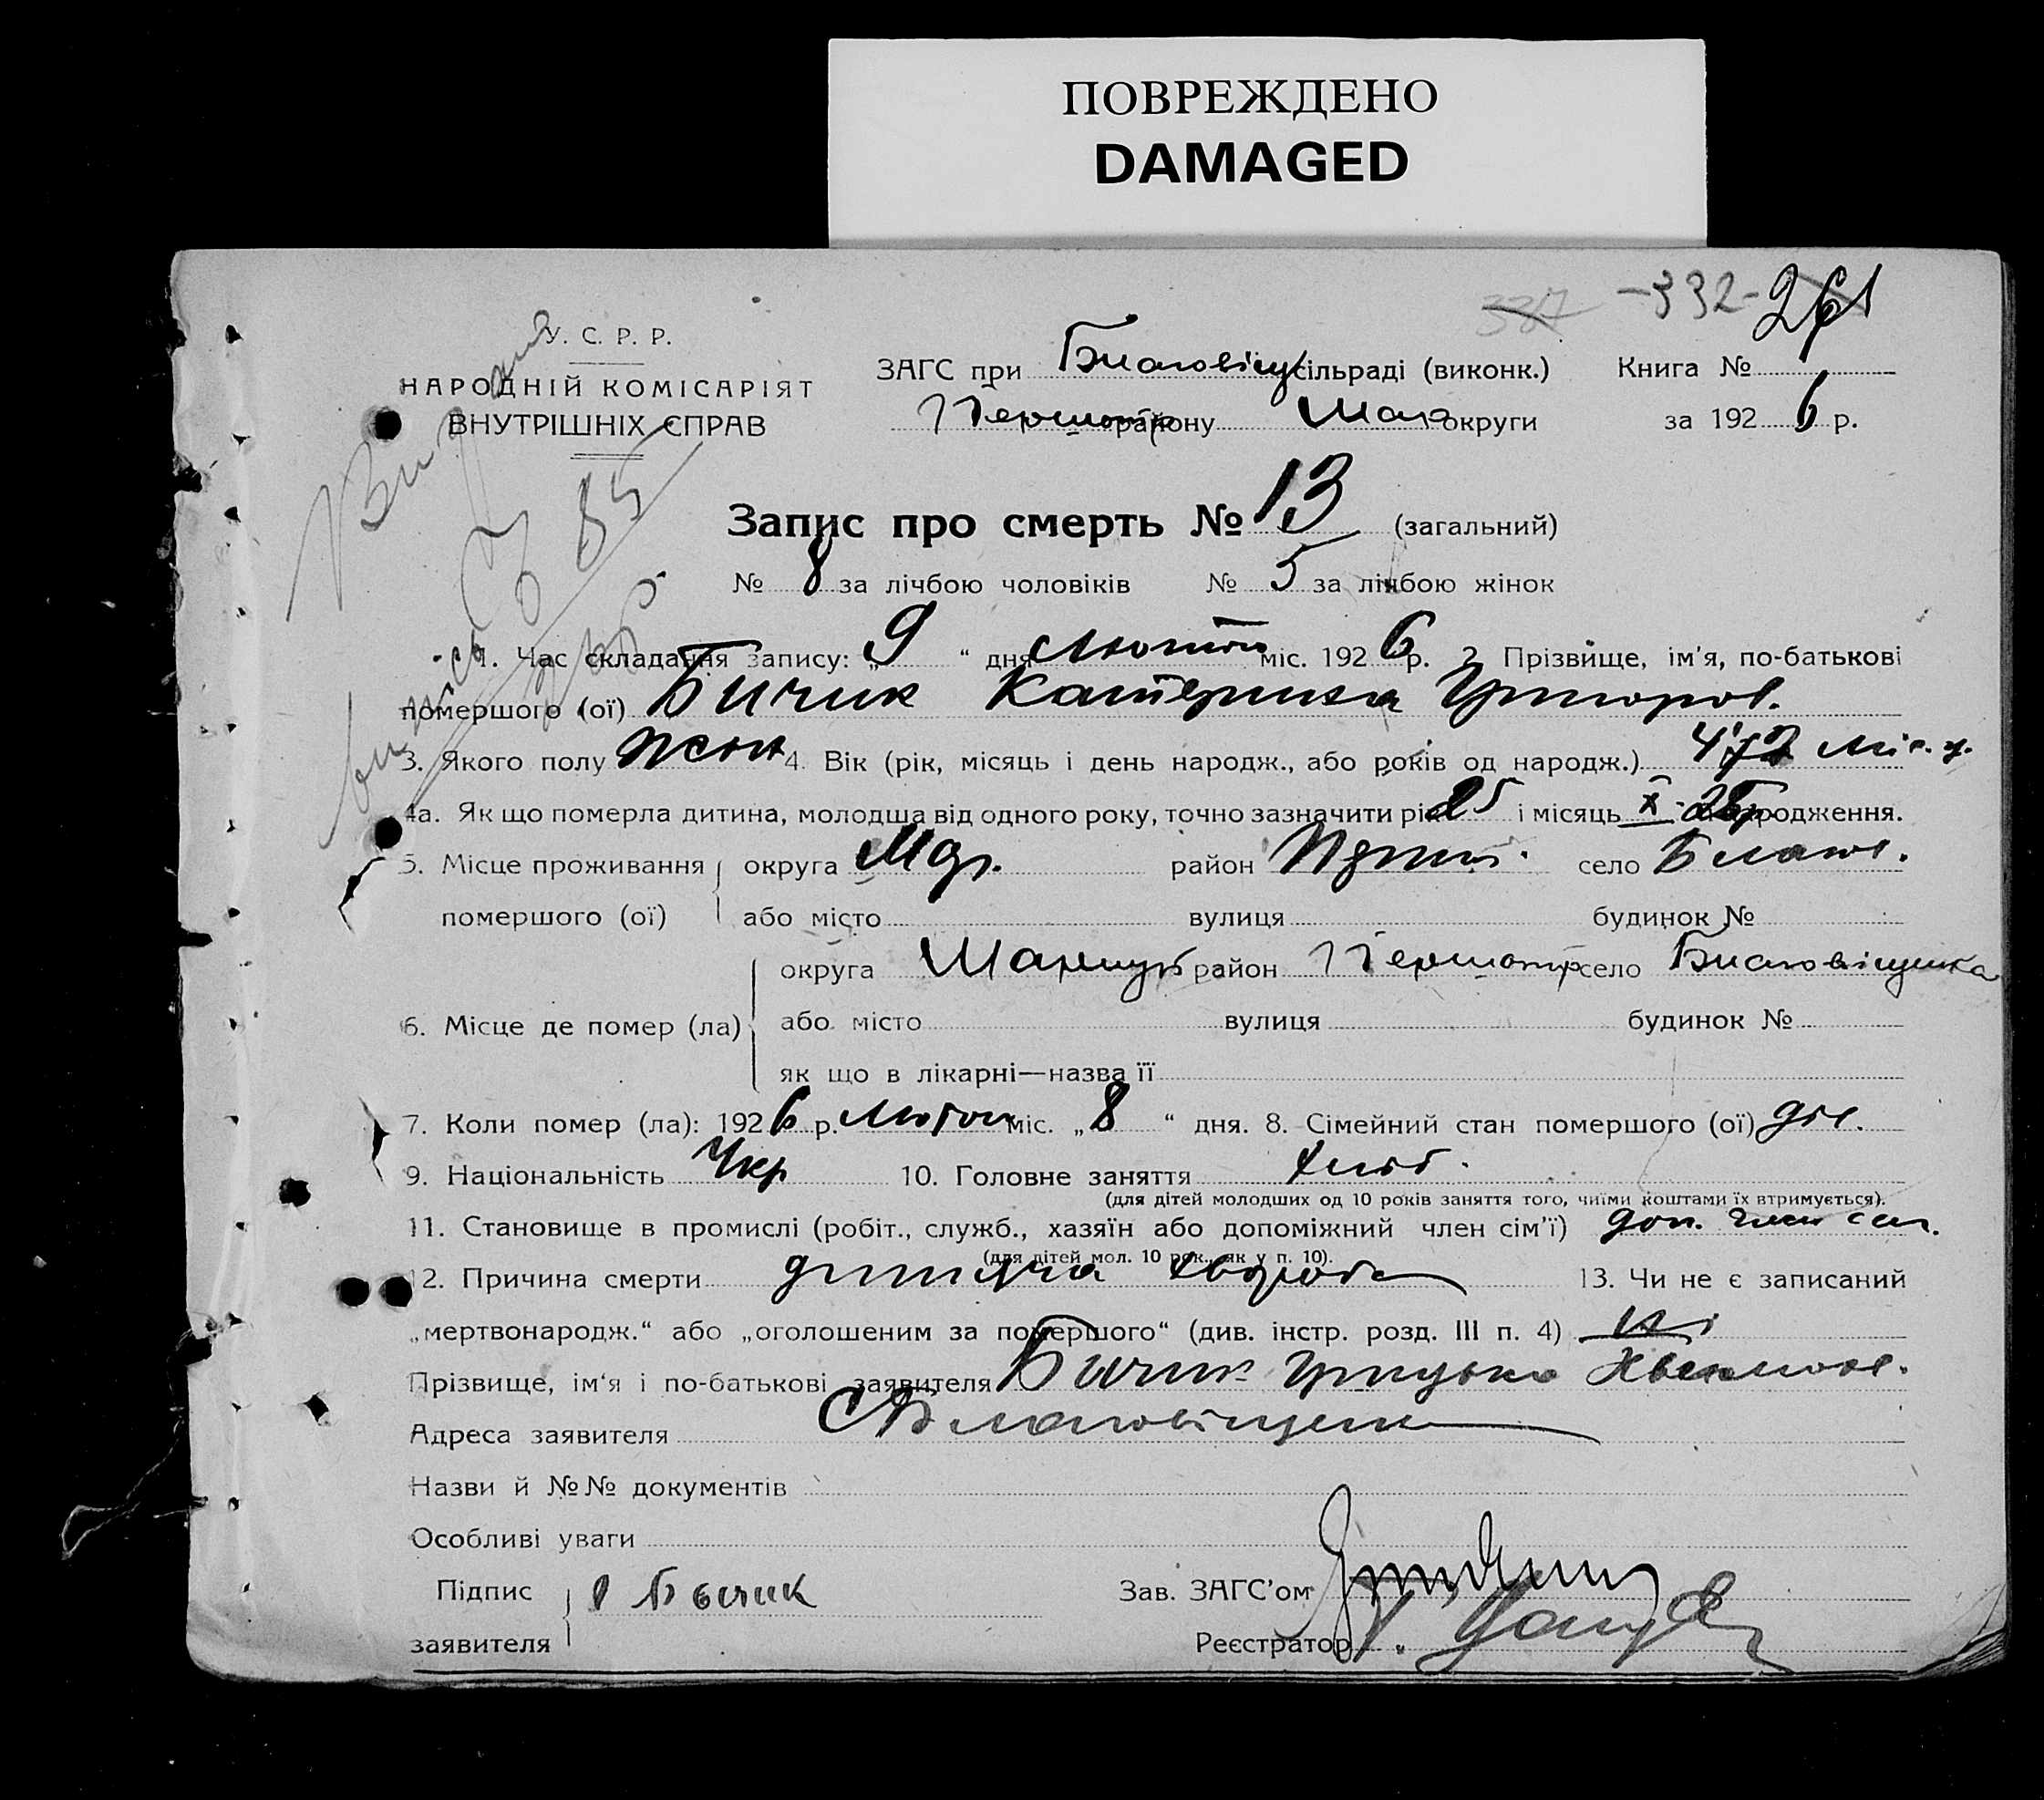 ПОВРЕЖДЕНО
DAMAGED
-332- 261
У. С. Р. Р.
НАРОДНІЙ КОМІСАРІЯТ
ВНУТРІШНІХ СПРАВ
ЗАГС при Благовіщ сільраді (виконк.) Книга №
району округи за 1926 р.
Запис про смерть № 13 (загальний)
№ 8 за лічбою чоловіків № 5 за лічбою жінок
1. Час складання запису: „9“ дня лютого міс. 1926 р. 2. Прізвище, ім'я, по-батькові
помершого (ої) Бичик Катерина Григоров.
3. Якого полу жін 4. Вік (рік, місяць і день народж., або років од народж.)
4а. Як що померла дитина, молодша від одного року, точно зазначити рік 25 і місяць X народження.
5. Місце проживання округа район село Благов.
помершого (ої) або місто вулиця будинок №
округа Маріуп район село Благовіщенка
6. Місце де помер (ла) або місто вулиця будинок №
як що в лікарні—назва її
7. Коли помер (ла): 1926 р. лютого міс. „8“ дня. 8. Сімейний стан помершого (ої) дів.
9. Національність Укр 10. Головне заняття хліб.
(для дітей молодших од 10 років заняття того, чиїми коштами їх втримується).
11. Становище в промислі (робіт., служб., хазяїн або допоміжний член сім'ї) доп. член сем.
(для дітей мол. 10 рок., як у п. 10).
12. Причина смерти дитяча хвороба 13. Чи не є записаний
„мертвонародж.“ або „оголошеним за помершого“ (див. інстр. розд. III п. 4) ні
Прізвище, ім'я і по-батькові заявителя Бичик Грицько
Адреса заявителя С Благовіщенка
Назви й №№ документів
Особливі уваги
Підпис Бычик Зав. ЗАГС'ом
заявителя Реєстратор